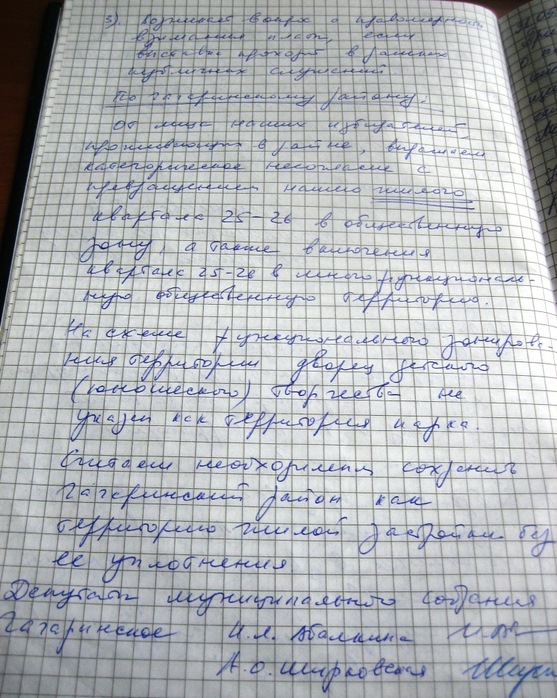 3) Возникает вопрос о правомерности
взимания платы, если
выставки проходят в рамках
публичных слушаний
По Гагаринскому району.
От лица наших избирателей
проживающих в районе, выражаем
категорическое несогласие с
превращением нашего жилого
квартала 25-26 в общественную
зону, а также включения
квартала 25-26 в многофункциональ-
ную общественную территорию.
На схеме функционального зонирова-
ния территории дворец детского
(юношеского) творчества не
указан как территория парка.
Считаем необходимым сохранить
Гагаринский район как
территорию жилой застройки без
ее уплотнения
Депутаты муниципального собрания
Гагаринское И.Л. Абалкина
А.О. Ширковская